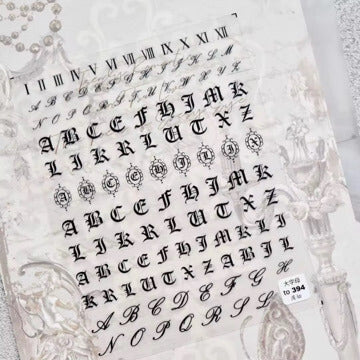 I II III IV V VI VII VIII IX X XI XII
A B C D E F G H I J K L M
N O P Q R S T U V W X Y Z
A B C E F H I J M K
L I K R L U T X Z
A B C E H I L I X
A B C E F H I J M K
L I K R L U T X Z
A B C E F H J M K L I
K R L U T X Z A B I J L
A B C D E F G H
N O P Q R S L
大字母
to 394